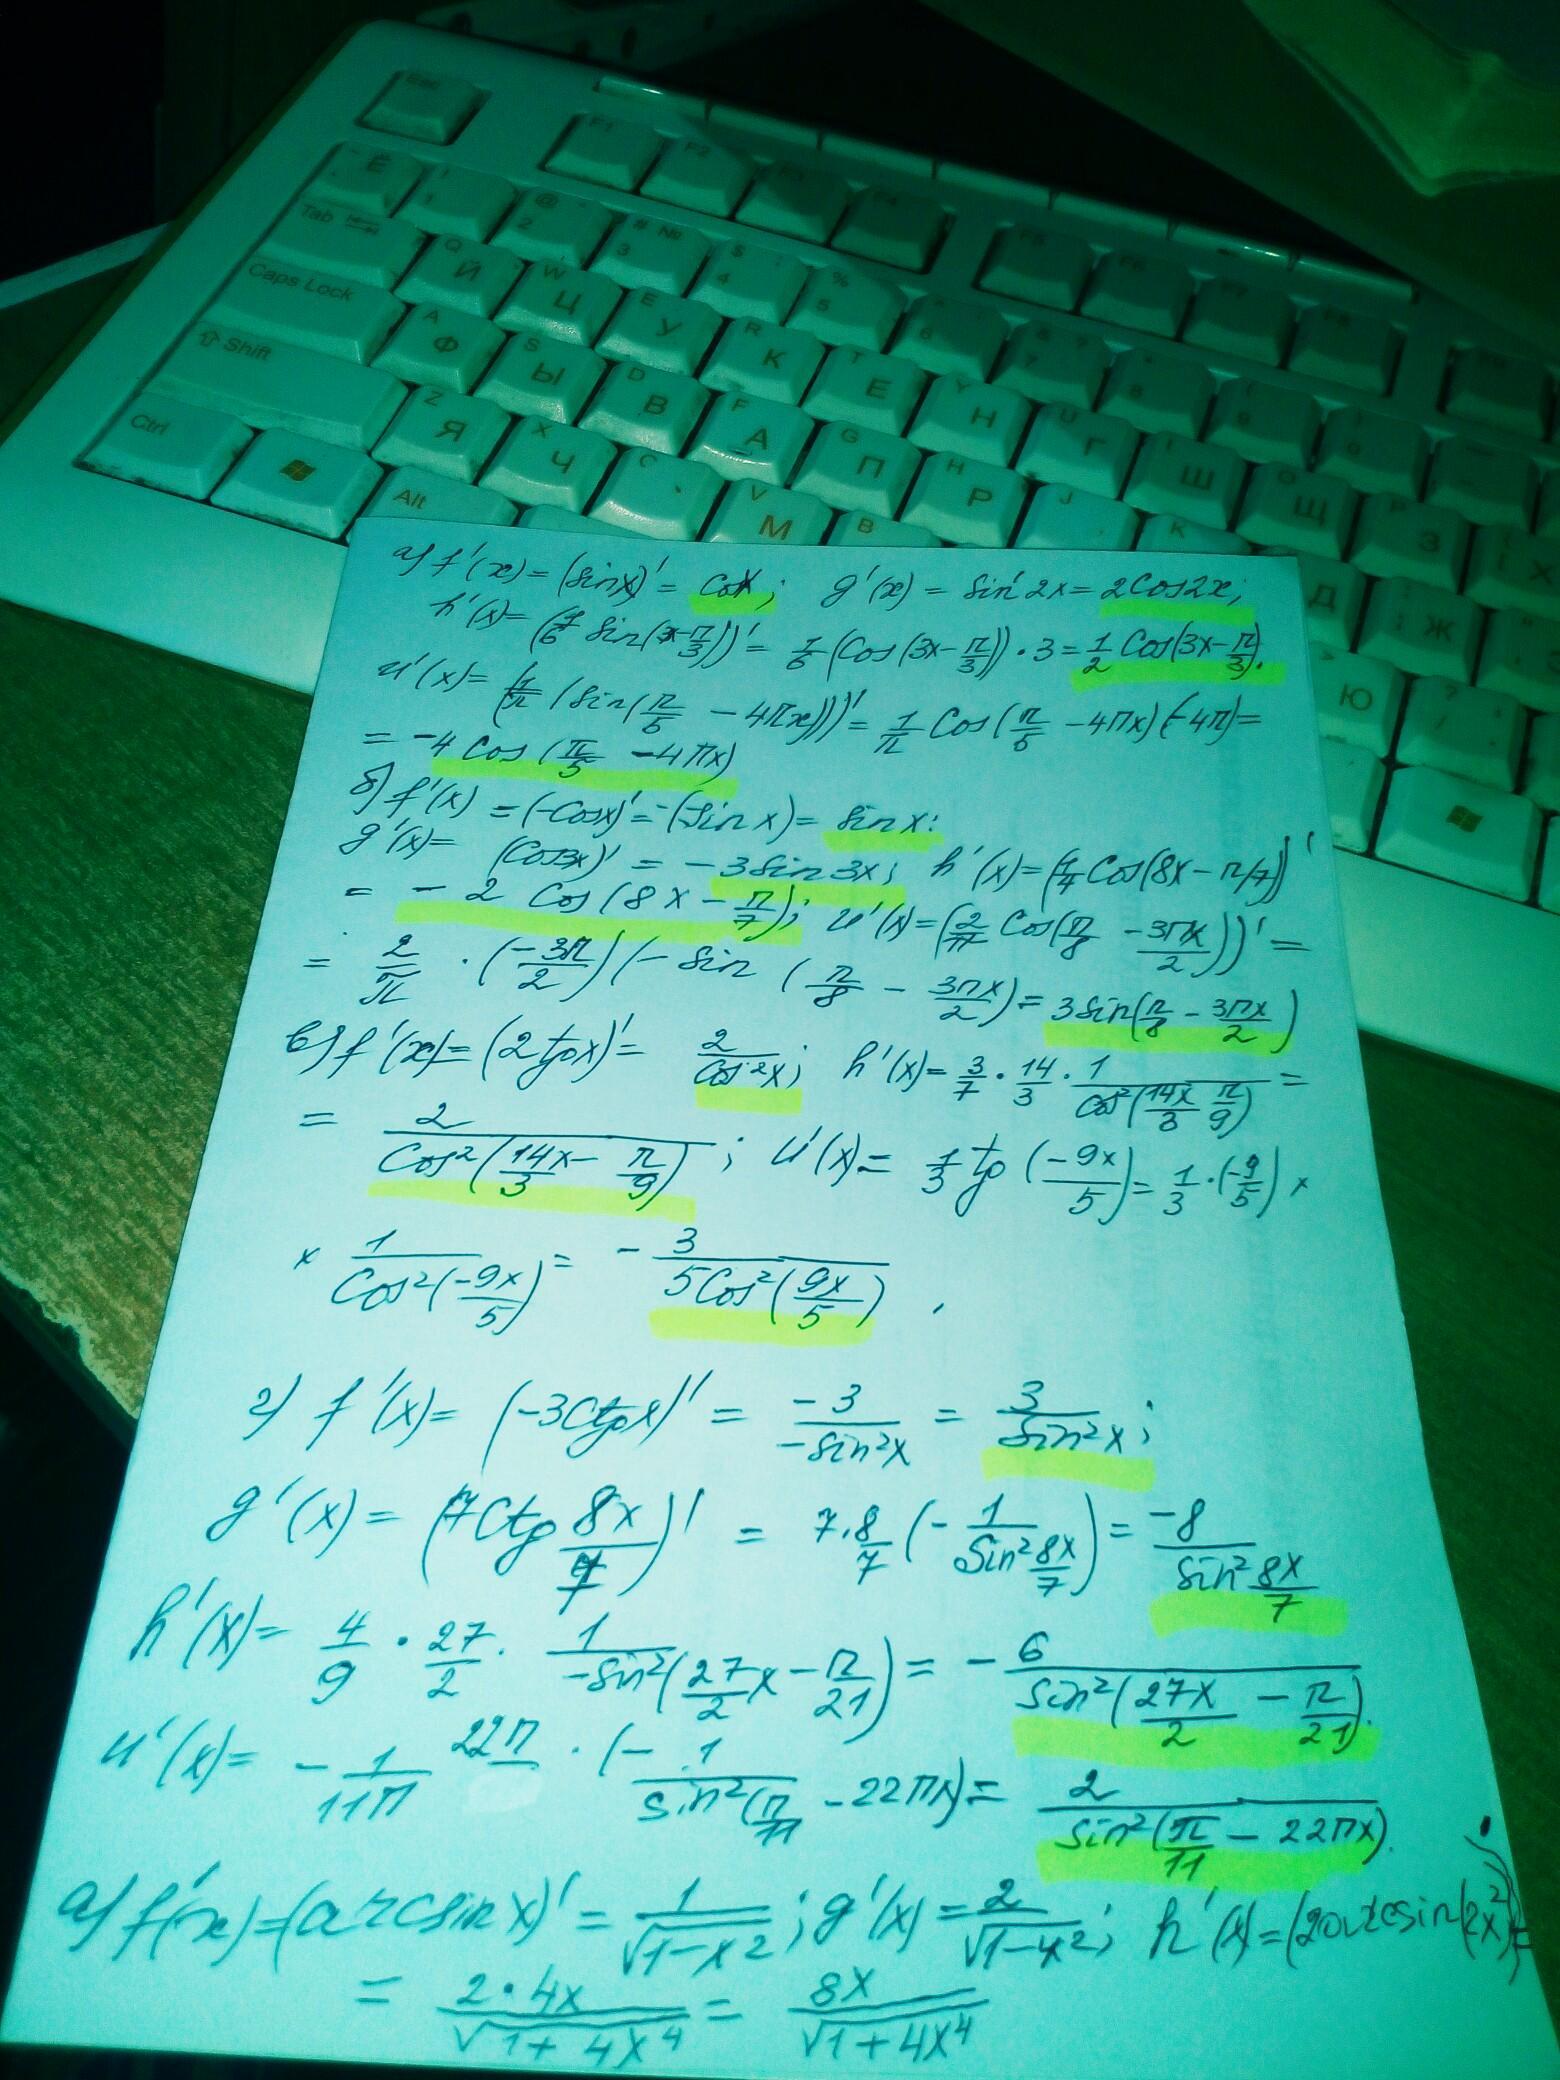 Esc F1 F2 F3 F4 F5 F6 F7 F8
~ Ё ! 1 @ " 2 # № 3 $ ; 4 % : 5 ^ 6 & ? 7 * 8 ( 9 ) 0
Tab Q Й W Ц E У R К T Е Y Н U Г I Ш O Щ P З [ Х
Caps Lock A Ф S Ы D В F А G П H Р J K Д Ж Э
Shift Z Я X Ч C V М B > Ю ? /
Ctrl Alt
а) f'(x) = (sinx)' = cosx; g'(x) = sin'2x = 2cos2x;
h'(x) = (1/6 sin(3x-π/3))' = 1/6 (cos(3x-π/3))·3 = 1/2 cos(3x-π/3).
u'(x) = (1/π (sin(π/5 - 4πx)))' = 1/π cos(π/5 - 4πx)(-4π) =
= -4 cos(π/5 - 4πx)
б) f'(x) = (-cosx)' = -(-sinx) = sinx:
g'(x) = (cos3x)' = -3sin3x; h'(x) = (1/4 cos(8x - π/7))'
= -2 cos(8x - π/7); u'(x) = (2/π cos(π/8 - 3πx/2))' =
= 2/π · (-3π/2)(-sin(π/8 - 3πx/2) = 3sin(π/8 - 3πx/2)
в) f'(x) = (2tgx)' = 2/cos²x; h'(x) = 3/7 · 14/3 · 1/cos²(14x/3 π/9) =
= 2/cos²(14x/3 - π/9); u'(x) = 1/3 tg(-9x/5) = 1/3 · (-9/5) ×
× 1/cos²(-9x/5) = - 3/5cos²(9x/5).
г) f'(x) = (-3ctgx)' = -3/-sin²x = 3/sin²x;
g'(x) = (7ctg 8x/7)' = 7·8/7 (- 1/sin² 8x/7) = -8/sin² 8x/7
h'(x) = 4/9 · 27/2 · 1/-sin²(27/2 x - π/21) = - 6/sin²(27x/2 - π/21).
u'(x) = - 1/11π 22π · (- 1/sin²(π/11 - 22πx) = 2/sin²(π/11 - 22πx).
а) f'(x) = (arcsinx)' = 1/√1-x²; g'(x) = 2/√1-x²; h'(x) = (2arcsin(2x²))' =
= 2·4x/√1+4x⁴ = 8x/√1+4x⁴